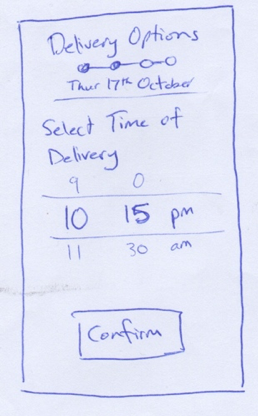 Delivery Options
Thur 17th October
Select Time of
Delivery
9 0
10 15 pm
11 30 am
Confirm